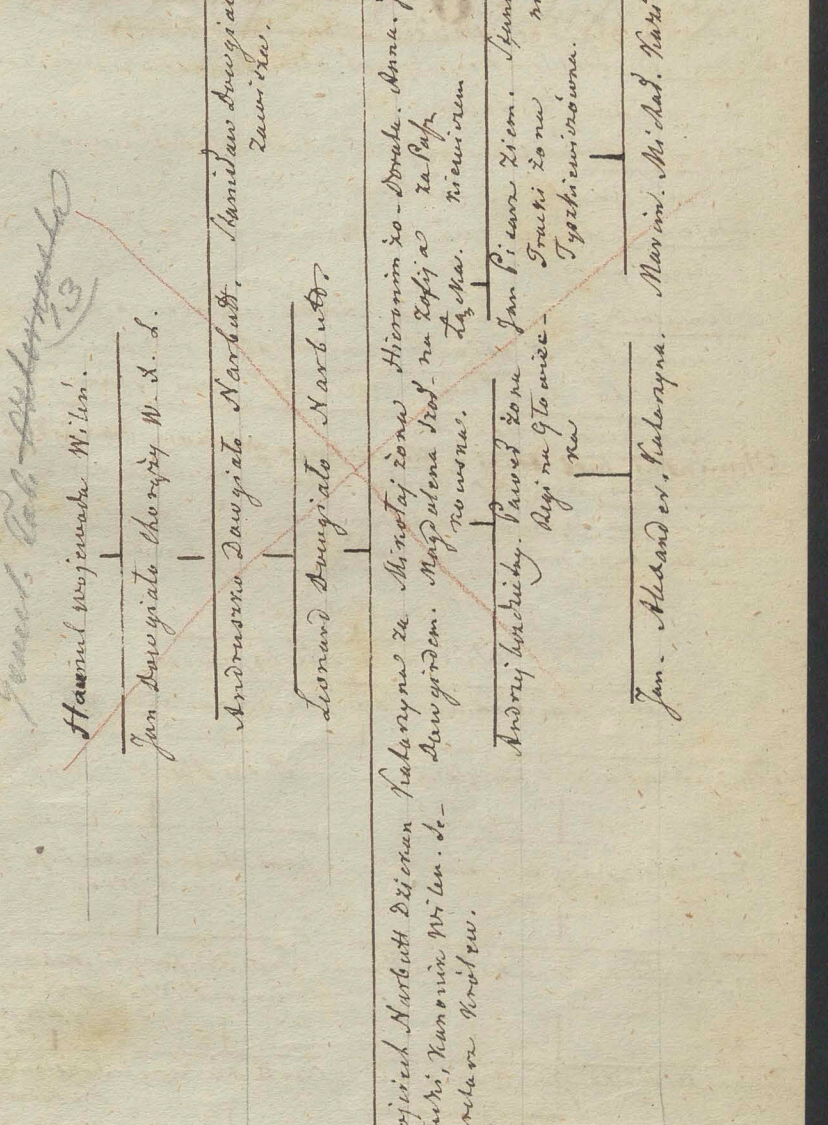 Geneal. Tab.
13
Hawnul wojewoda Wileń.
Jan Dowgiało Chorąży W. X. L.
Andruszko Dowgiało Narbutt. Stanisław Dowgiał
Zawisza.
Leonard Dowgiało Narbutt.
ojciech Narbutt Dziekan Katarzyna za Mikołaj żona Hieronim żo- Dorota. Anna.
cki, Kanonik Wilen. Se- Dowgirdem. Magdalena Szod- na Zofija za Pasz
kretarz Królew. kowska. Łązka. kiewiczem
Andrzej bezdzietny. Paweł żona Jan Pisarz Ziem. Stan
Regina Głowiec- Trocki żona
ka Tyszkiewiczówna.
Jan. Alexander. Katarzyna. Marcin. Michał. Kazi